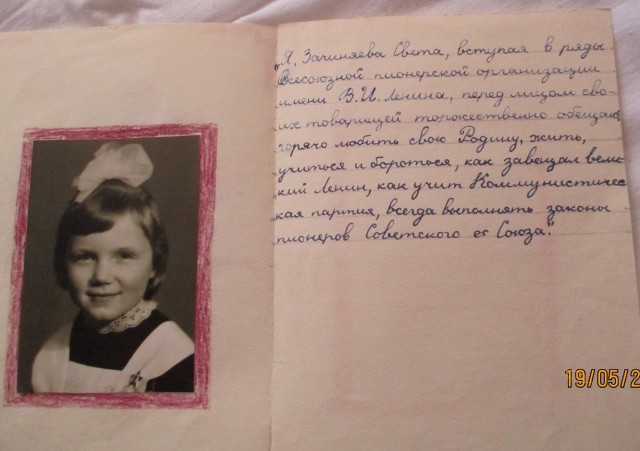 "Я, Зачиняева Света, вступая в ряды
Всесоюзной пионерской организации
имени В.И. Ленина, перед лицом сво-
их товарищей торжественно обещаю
горячо любить свою Родину, жить,
учиться и бороться, как завещал вели-
кий Ленин, как учит Коммунистичес-
кая партия, всегда выполнять законы
пионеров Советского Союза."
19/05/2